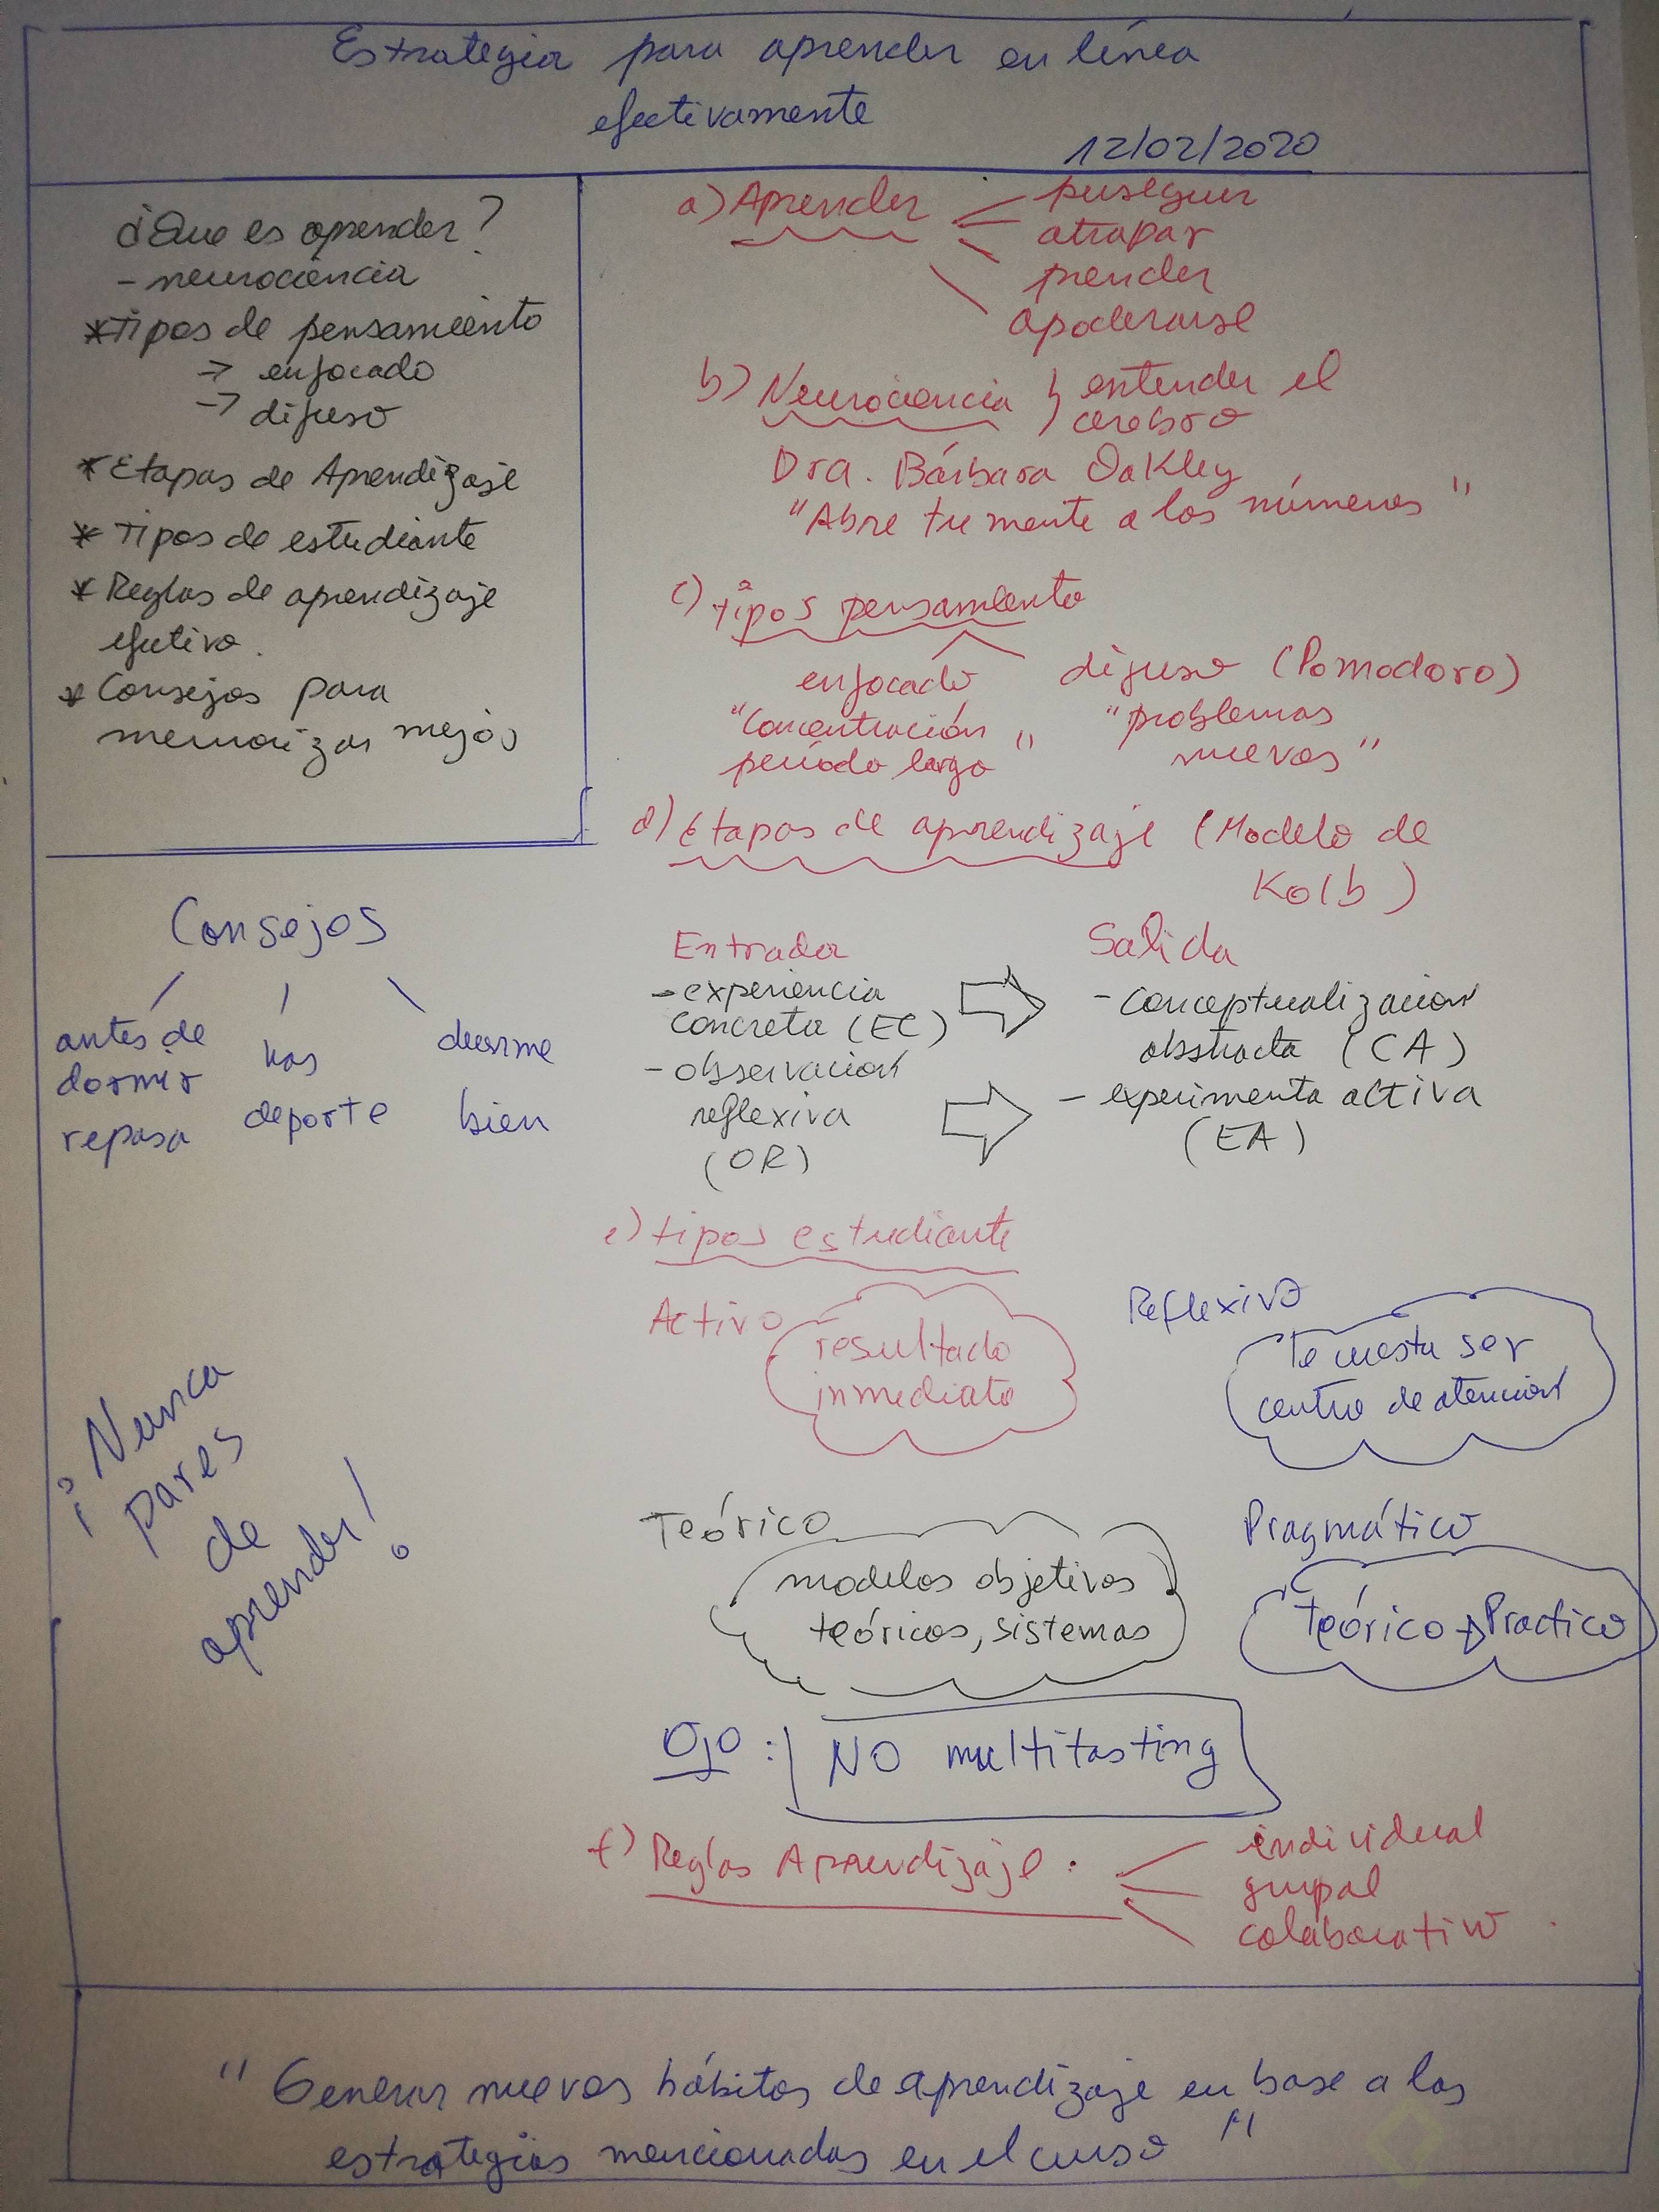 Estrategia para aprender en línea
efectivamente
12/02/2020
¿Que es aprender?
- neurociencia
* Tipos de pensamiento
-> enfocado
-> difuso
* Etapas de Aprendizaje
* Tipos de estudiante
* Reglas de aprendizaje
efectivo.
* Consejos para
memorizar mejor
Consejos
antes de
dormir
repasa
haz
deporte
duerme
bien
¡Nunca
pares
de
aprender!
a) Aprender
perseguir
atrapar
prender
apoderarse
b) Neurociencia } entender el
cerebro
Dra. Bárbara Oakley
"Abre tu mente a los números"
c) tipos pensamiento
enfocado
"Concentración
período largo"
difuso (Pomodoro)
"problemas
nuevos"
d) Etapas de aprendizaje (Modelo de
Kolb)
Entrada
- experiencia
concreta (EC)
- observación
reflexiva
(OR)
Salida
- conceptualización
abstracta (CA)
- experimenta activa
(EA)
e) tipos estudiante
Activo
resultado
inmediato
Reflexivo
Te cuesta ser
centro de atención
Teórico
modelos objetivos
teóricos, sistemas
Pragmático
Teórico -> Practico
Ojo: NO multitasting
f) Reglas Aprendizaje:
individual
grupal
colaborativo
"Generar nuevos hábitos de aprendizaje en base a las
estrategias mencionadas en el curso"